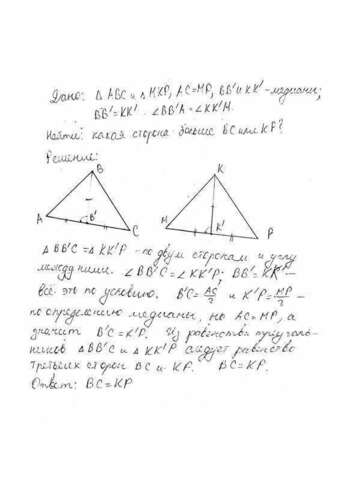 Дано: △ ABC и △ MKP, AC=MP, BB' и KK' - медианы;
BB'=KK'. ∠BB'A = ∠KK'M.
Найти: какая сторона больше BC или KP?
Решение:
B
K
A
B'
C
M
K'
P
△ BB'C = △ KK'P - по двум сторонам и углу
между ними. ∠BB'C = ∠KK'P. BB' = KK' -
всё это по условию. B'C = AC/2 и K'P = MP/2 -
по определению медианы, но AC=MP, а
значит B'C = K'P. Из равенства треуголь-
ников △BB'C и △KK'P следует равенство
третьих сторон BC и KP. BC=KP.
Ответ: BC=KP